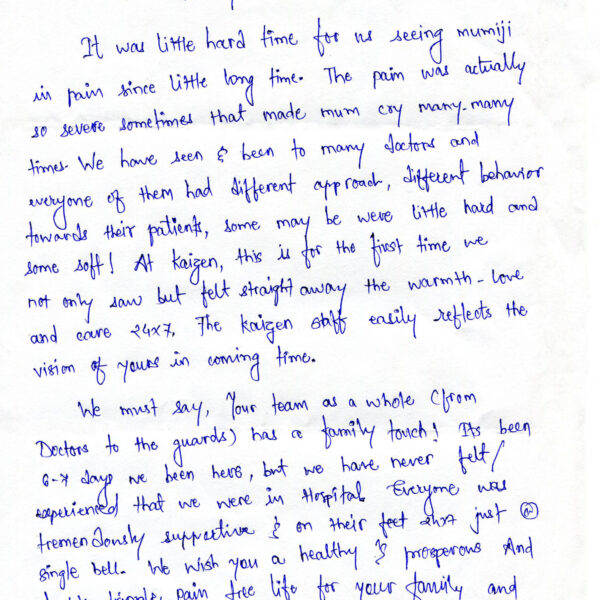 It was little hard time for us seeing mumiji
in pain since little long time. The pain was actually
so severe sometimes that made mum cry many-many
times. We have seen & been to many doctors and
everyone of them had different approach, different behavior
towards their patients, some may be were little hard and
some soft! At Kaizen, this is for the first time we
not only saw but felt straight away the warmth - love
and care 24x7. The Kaizen staff easily reflects the
vision of yours in coming time.
We must say, Your team as a whole (from
Doctors to the guards) has a family touch! Its been
6-7 days we been here, but we have never felt/
experienced that we were in Hospital. Everyone was
tremendously supportive & on their feet 24x7 just
single bell. We wish you a healthy & prosperous And
pain free life for your family and